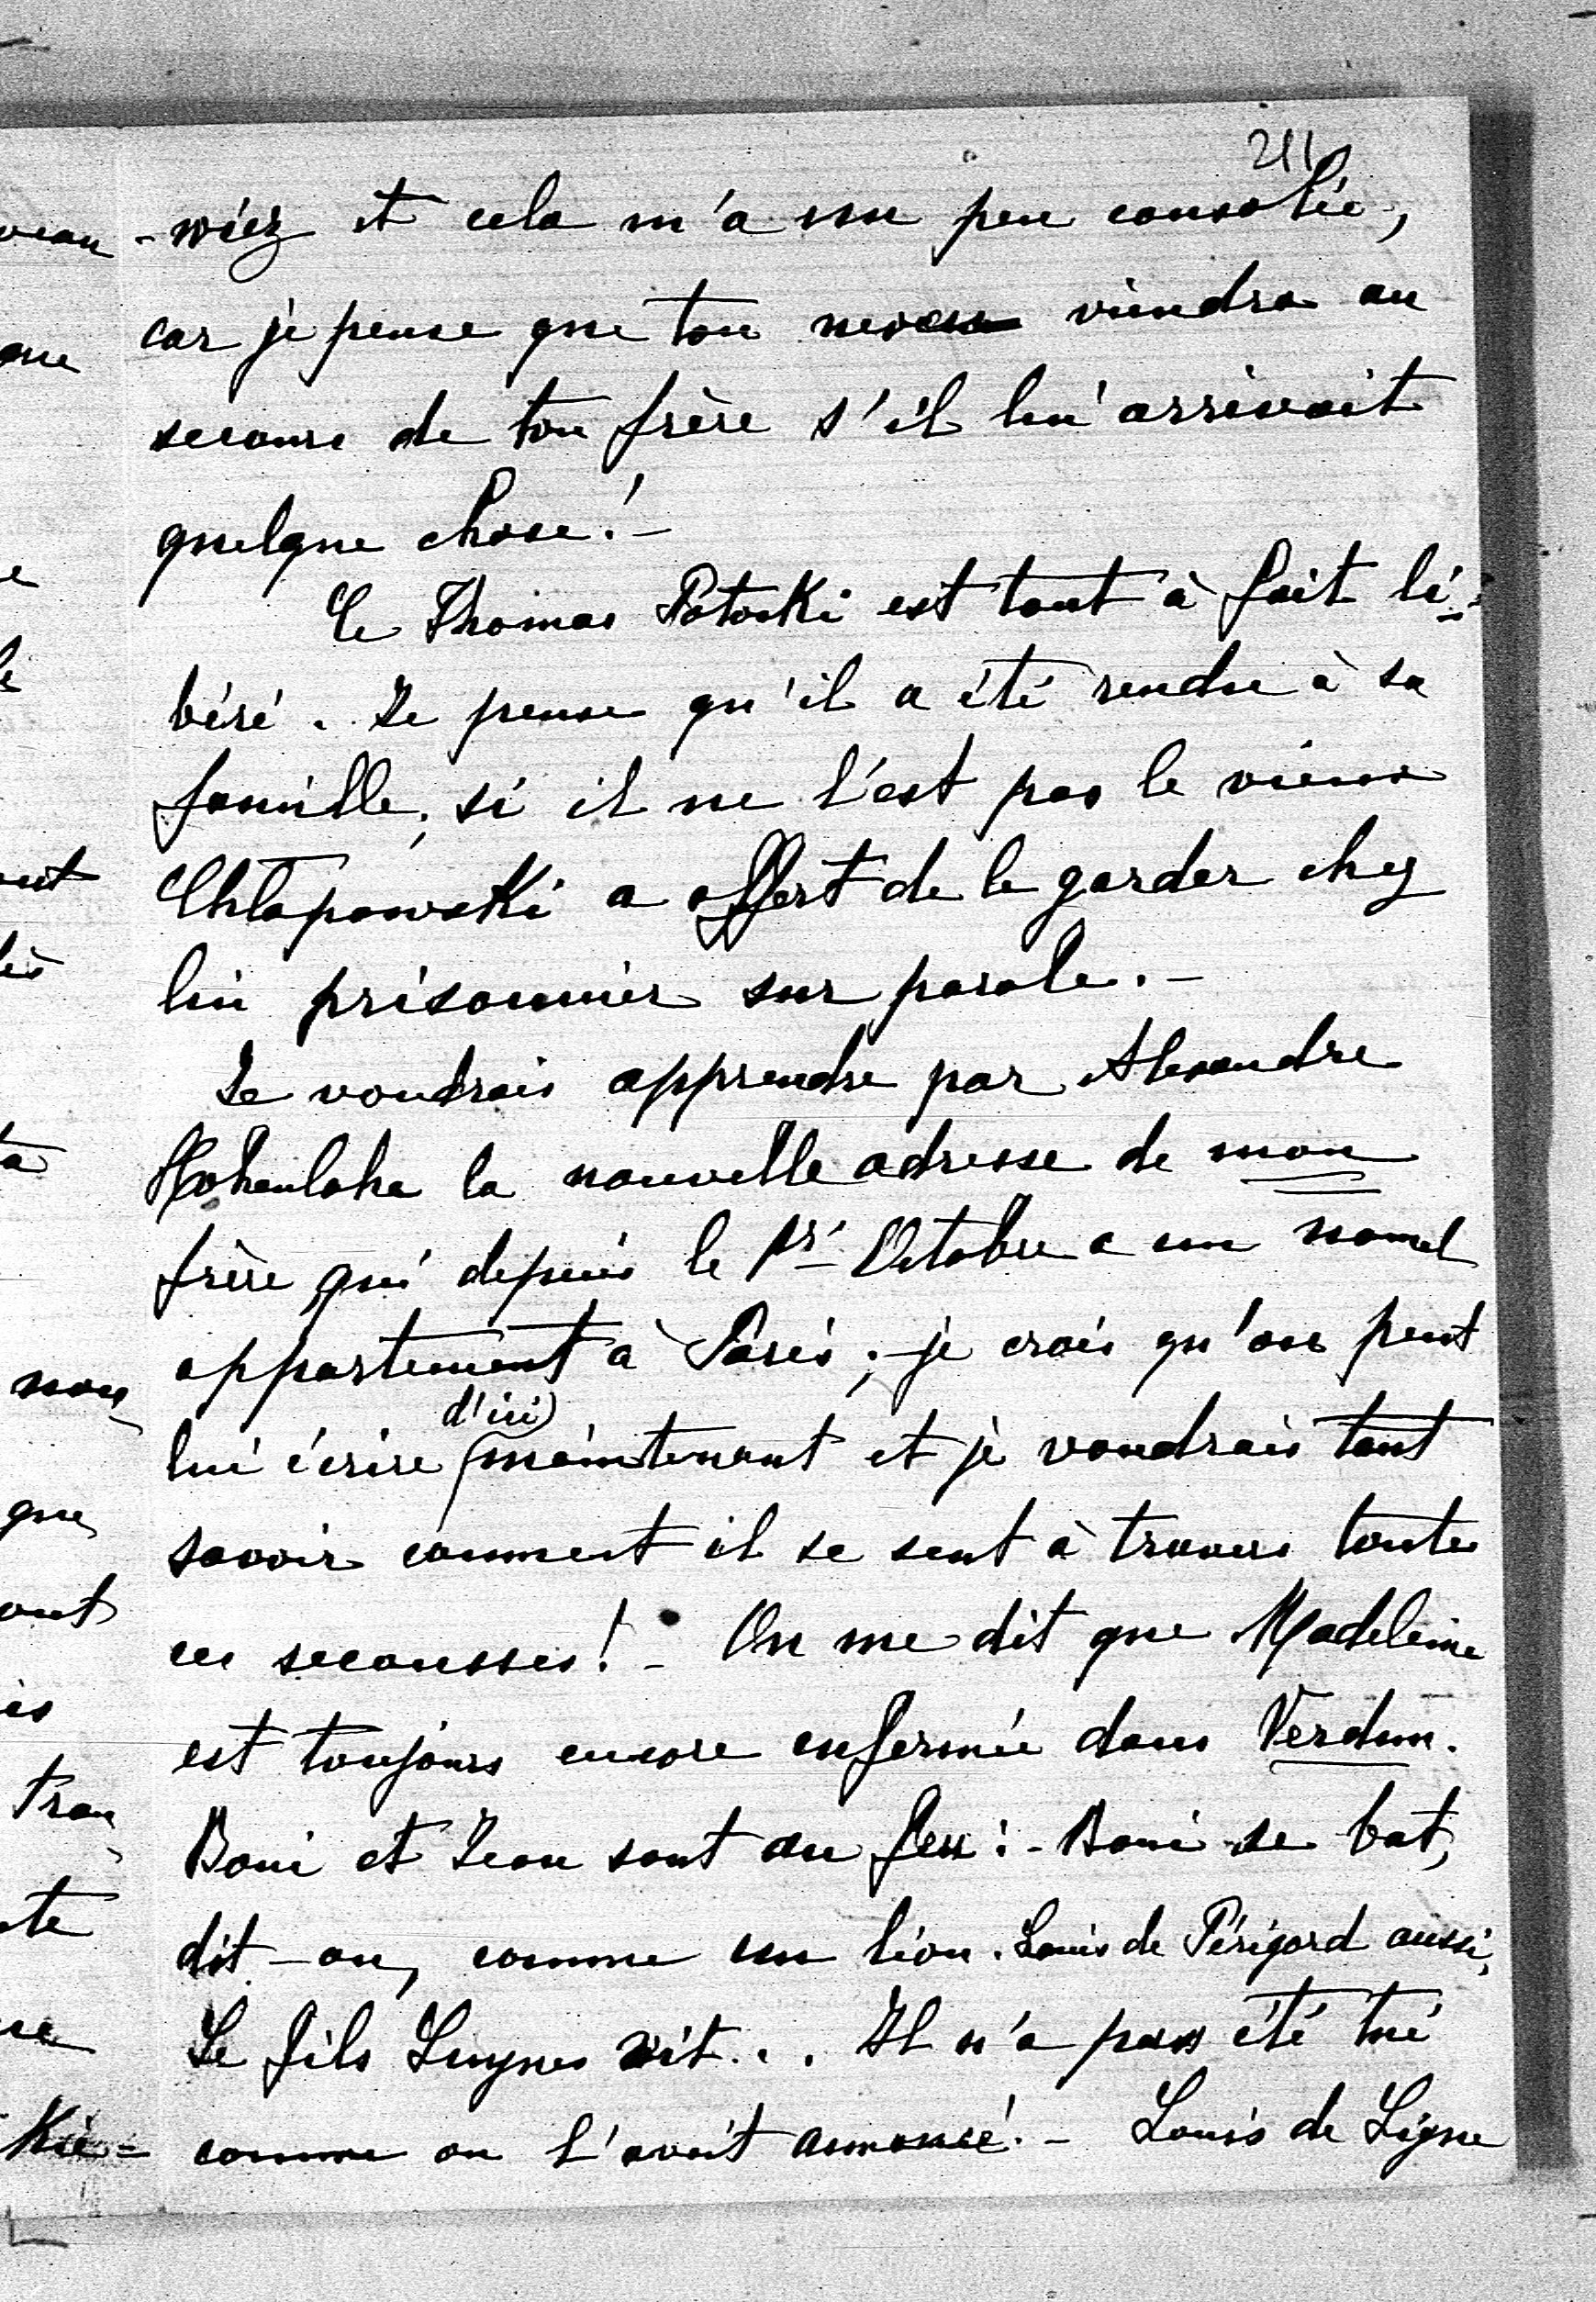 211
-wicz et cela m'a un peu consolée,
car je pense que ton neveu viendra au
secours de ton frère s'il lui arrivait
quelque chose! -
Ce Thomas Potocki est tout à fait li-
béré. Je pense qu'il a été rendu à sa
famille, si il ne l'est pas le vieux
Chlapowski a offert de le garder chez
lui prisonnier sur parole. -
Je voudrais apprendre par Alexandre
Hohenlohe la nouvelle adresse de mon
frère, qui depuis le 1er Octobre a un nouvel
appartement à Paris; je crois qu'on peut
d'ici
lui écrire maintenant et je voudrais tant
savoir comment il se sent à travers toutes
ces secousses! - On me dit que Madeleine
est toujours encore enfermée dans Verdun.
Boni et Jean sont au feu: - Boni se bat,
dit-on, comme un lion. Louis de Périgord aussi,
Le fils Luynes vit... Il n'a pas été tué
comme on l'avait annoncé. - Louis de Ligne